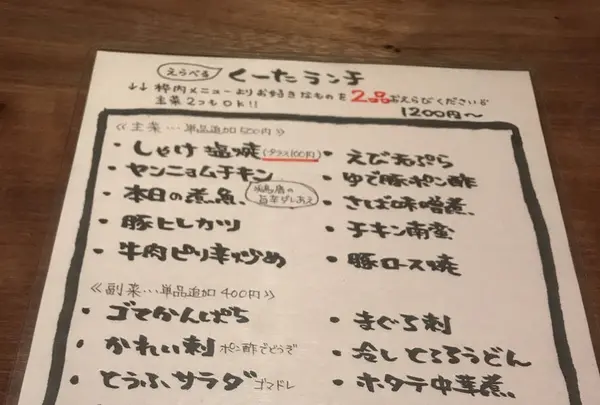 えらべる くーたランチ
↓↓ 枠内メニューよりお好きなものを2品おえらびください♪
主菜2つもOK!!
1200円〜
≪主菜…単品追加500円≫
・しゃけ塩焼(プラス100円)
・えび天ぷら
・ヤンニョムチキン
・ゆで豚ポン酢
・本日の煮魚
・さば味噌煮
・豚ヒレカツ
・チキン南蛮
・牛肉ピリ辛炒め
・豚ロース焼
≪副菜…単品追加400円≫
・ゴマかんぱち
・まぐろ刺
・かれい刺 ポン酢でどうぞ
・冷しとろろうどん
・とうふサラダ ゴマドレ
・ホタテ中華煮